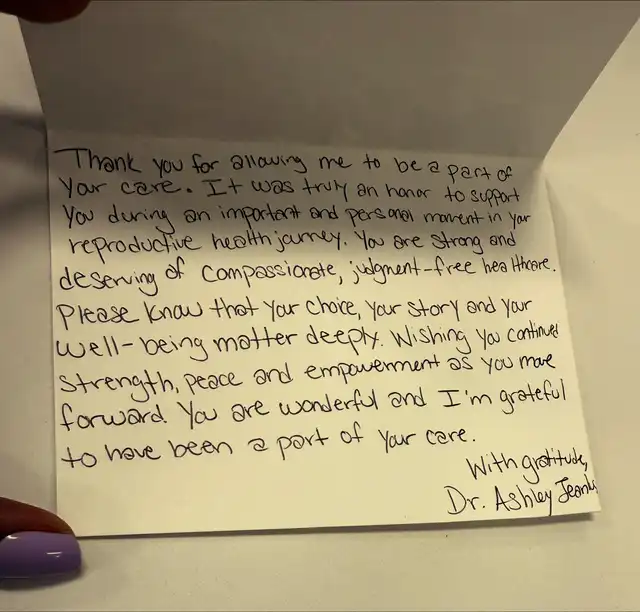 Thank you for allowing me to be a part of
your care. It was truly an honor to support
you during an important and personal moment in your
reproductive health journey. You are strong and
deserving of compassionate, judgment-free healthcare.
Please know that your choice, your story and your
well-being matter deeply. Wishing you continued
strength, peace and empowerment as you move
forward. You are wonderful and I'm grateful
to have been a part of your care.
With gratitude,
Dr. Ashley